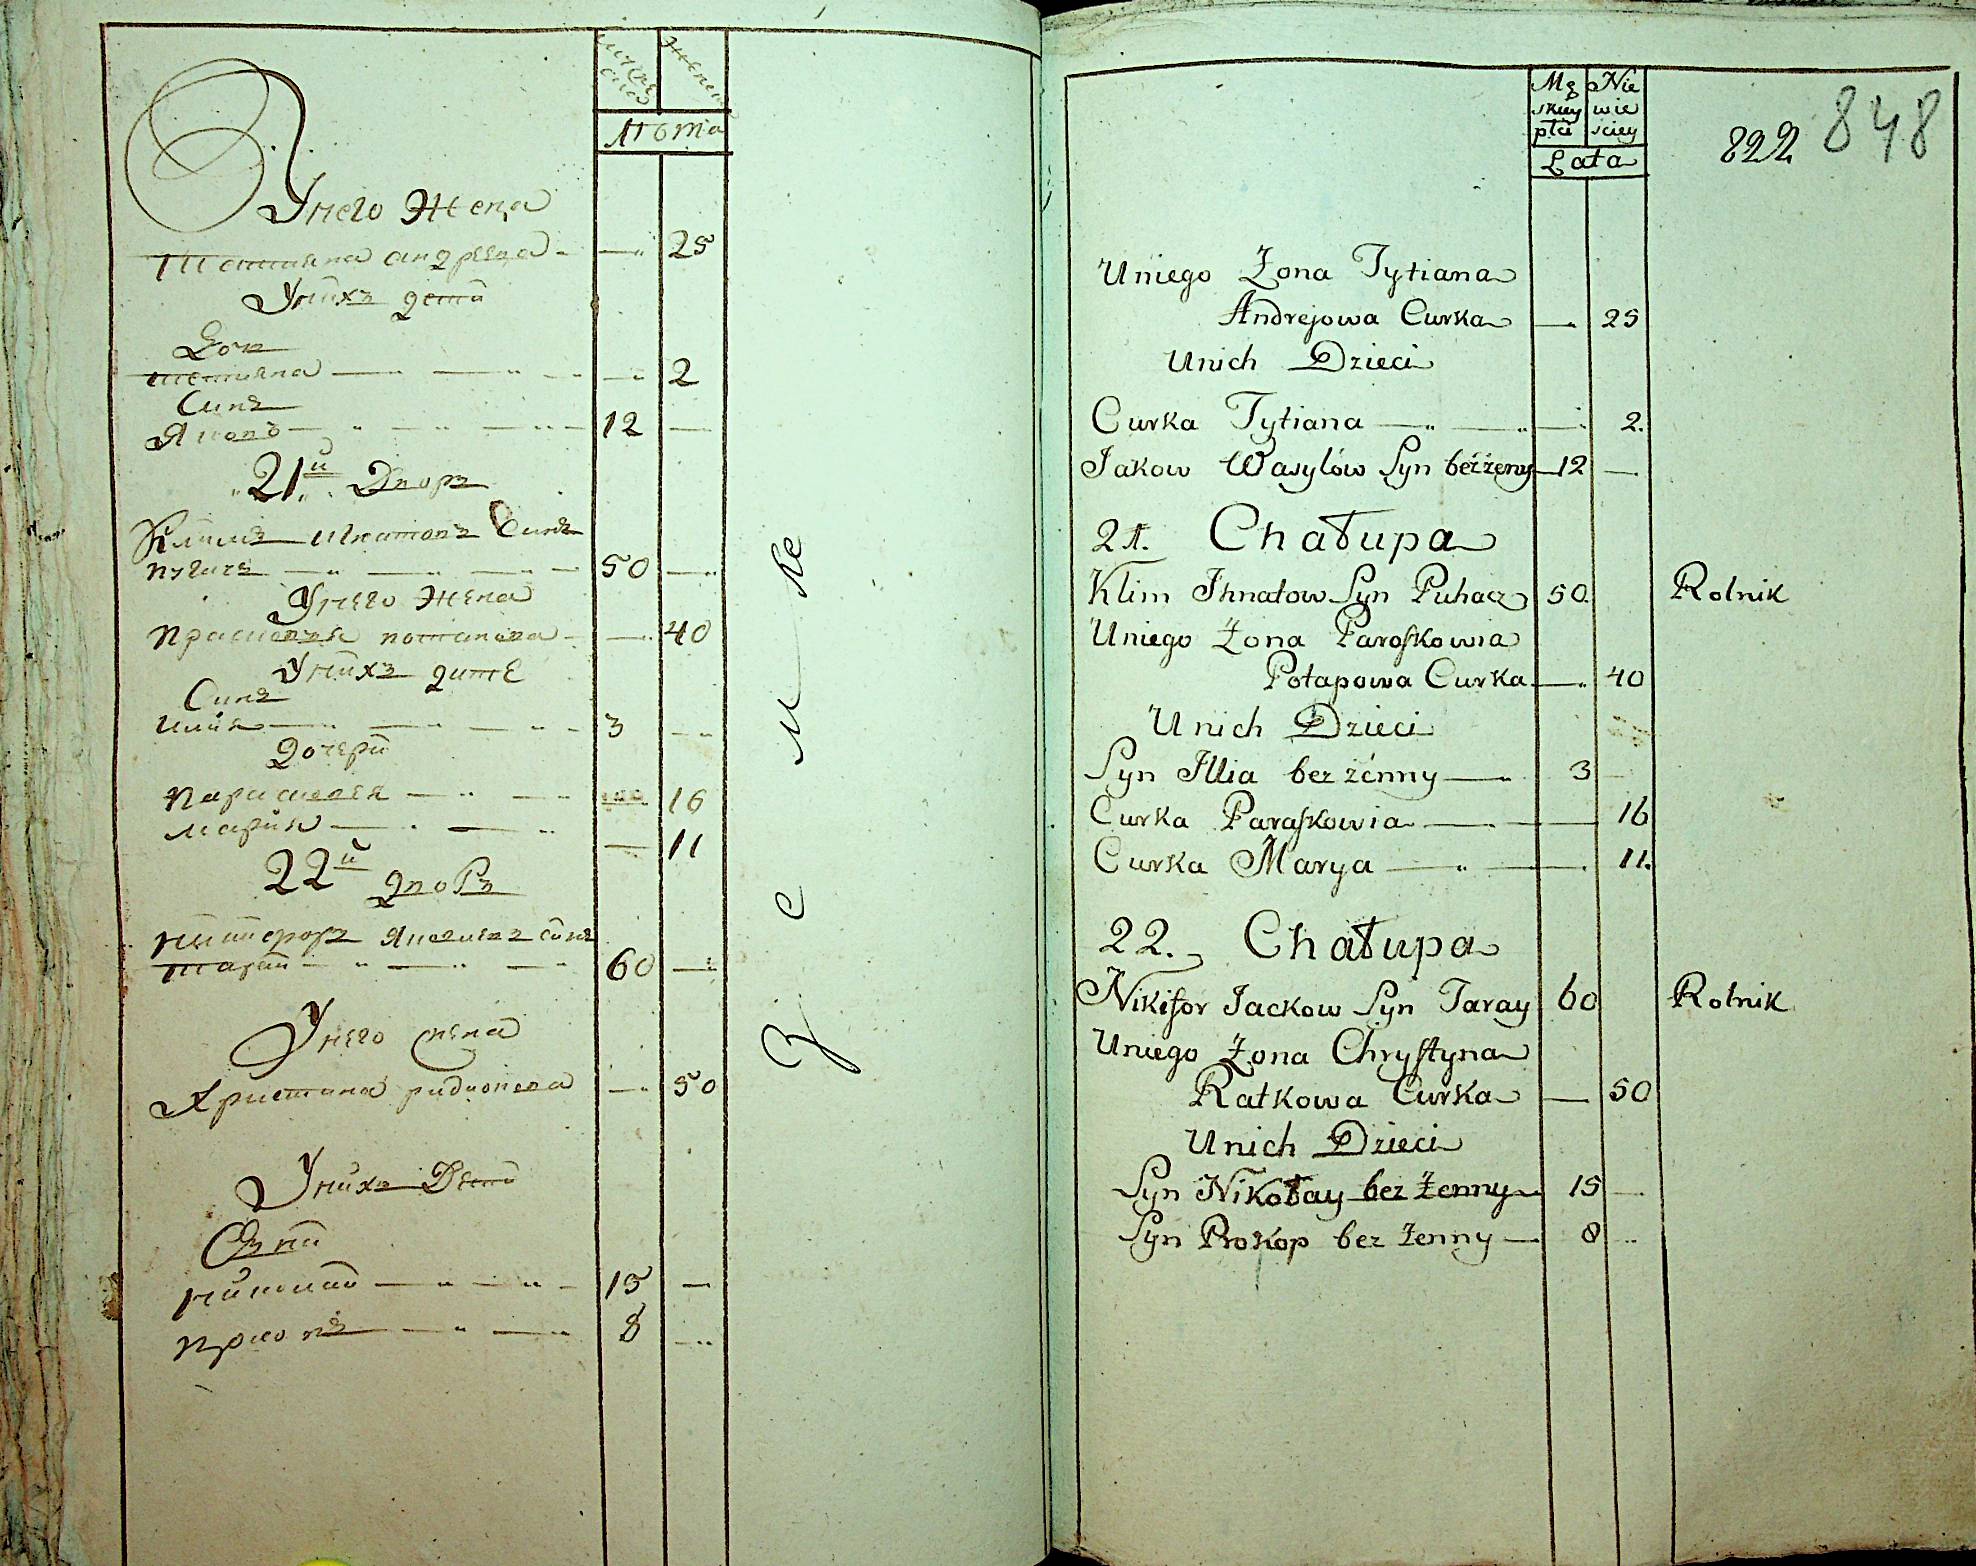 Мужеска
Женска
Лѣта
Унего Жена
Татияна андреева 25
Унихъ дети
Доч
татияна 2
Синъ
Яковъ 12
21й Дворъ
Климъ игнатовъ Синъ
пугачъ 50
Унего Жена
прасковья потапова 40
Унихъ дите
Синъ
илия 3
Дочери
парасковия 16
мария 11
22й дворъ
никифоръ Яцковъ синъ
тарай 60
Унего жена
Христина радкова 50
Унихъ Дети
Сини
николай 15
прокопъ 8
822 848
Mę skiey płci
Nie wie sciey
Lata
Uniego Żona Tytiana
Andrejowa Curka 25
Unich Dzieci
Curka Tytiana 2.
Jakow Wasylów Syn bez żeny 12
21. Chałupa
Klim Ihnatow Syn Puhacz 50. Rolnik
Uniego Żona Paroskowia
Potapowa Curka 40
Unich Dzieci
Syn Illia bez żenny 3
Curka Paraskowia 16
Curka Marya 11.
22. Chałupa
Nikifor Jackow Syn Taray 60 Rolnik
Uniego Żona Chrystyna
Ratkowa Curka 50
Unich Dzieci
Syn Nikołay bez Żenny 15
Syn Prokop bez Żenny 8